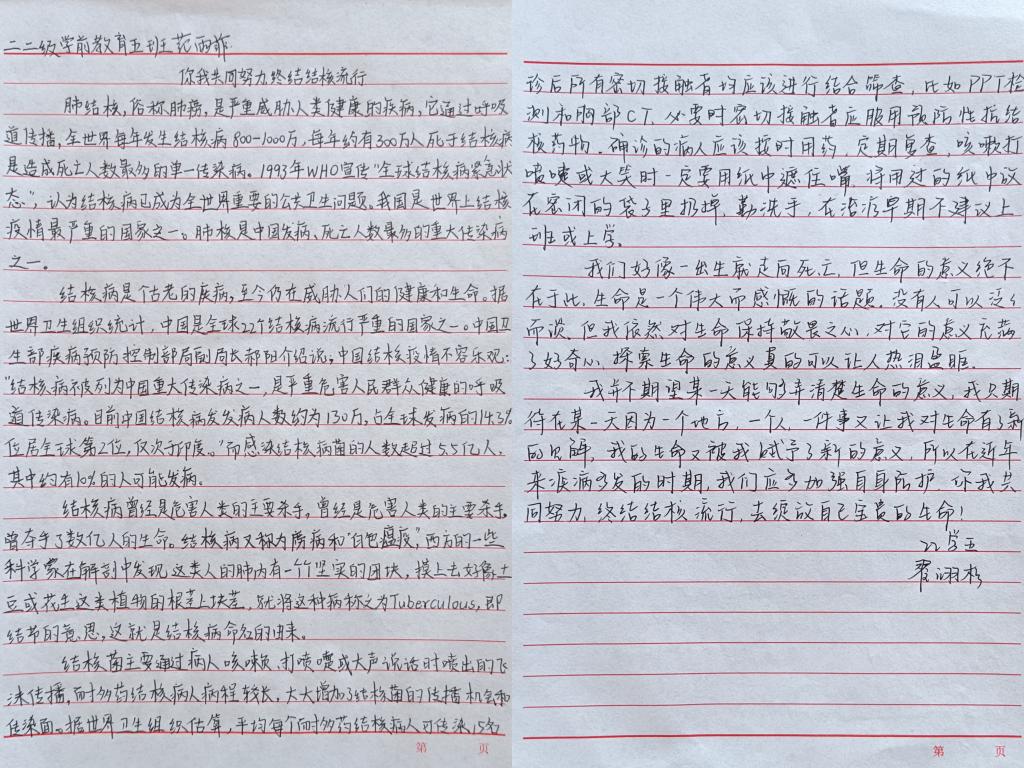 二二级学前教育五班 范雨
你我共同努力终结结核流行
肺结核,俗称肺痨,是严重威胁人类健康的疾病,它通过呼吸
道传播,全世界每年发生结核病800-1000万,每年约有300万人死于结核病
是造成死亡人数最多的单一传染病。1993年WHO宣传“全球结核病紧急状
态”,认为结核病已成为全世界重要的公共卫生问题、我国是世界上结核
疫情最严重的国家之一。肺核是中国发病、死亡人数最多的重大传染病
之一。
结核病是个古老的疾病,至今仍在威胁人们的健康和生命。据
世界卫生组织统计,中国是全球22个结核病流行严重的国家之一。中国卫
生部疾病预防控制部局副局长郝阳介绍说,中国结核疫情不容乐观:
“结核病不被列为中国重大传染病之一,是严重危害人民群众健康的呼吸
道传染病。目前中国结核病发发病人数约为130万,占全球发病的14.3%
位居全球第2位,仅次于印度。”而感染结核病菌的人数超过5.5亿人,
其中约有10%的人可能发病。
结核病曾经是危害人类的主要杀手,曾经是危害人类的主要杀手,
曾夺手了数亿人的生命。结核病又称为痨病和“白色瘟疫”,西方的一些
科学家在解剖中发现这类人的肺内有一个坚实的团块,摸上去好像土
豆或花生这类植物的根茎上块茎,就将这种病称之为Tuberculous,即
结节的意思,这就是结核病命名的由来。
结核菌主要通过病人咳嗽、打喷嚏或大声说话时喷出的飞
沫传播,耐多药结核病人病程较长,大大增加了结核菌的传播机会和
传染面。据世界卫生组织估算,平均每个耐多药结核病人可传染15名
诊后所有密切接触者均应该进行结合筛查,比如PPT检
测和胸部CT.必要时密切接触者应服用预防性抗结
核药物.确诊的病人应该按时用药.定期复查,咳嗽打
喷嚏或大笑时一定要用纸巾遮住嘴.将用过的纸巾放
在密闭的袋子里扔掉.勤洗手,在治疗早期不建议上
班或上学。
我们好像一出生就走向死亡.但生命的意义绝不
在于此.生命是一个伟大而感慨的话题.没有人可以泛泛
而谈.但我依然对生命保持敬畏之心.对它的意义充满
了好奇心.探索生命的意义真的可以让人热泪盈眶.
我并不期望某一天能够弄清楚生命的意义.我只期
待在某一天因为一个地方,一个人,一件事又让我对生命有了新
的见解,我的生命又被我赋予了新的意义.所以在近年
来疾病多发的时期,我们应多加强自身防护.你我共
同努力.终结结核流行.去绽放自己宝贵的生命!
22学五